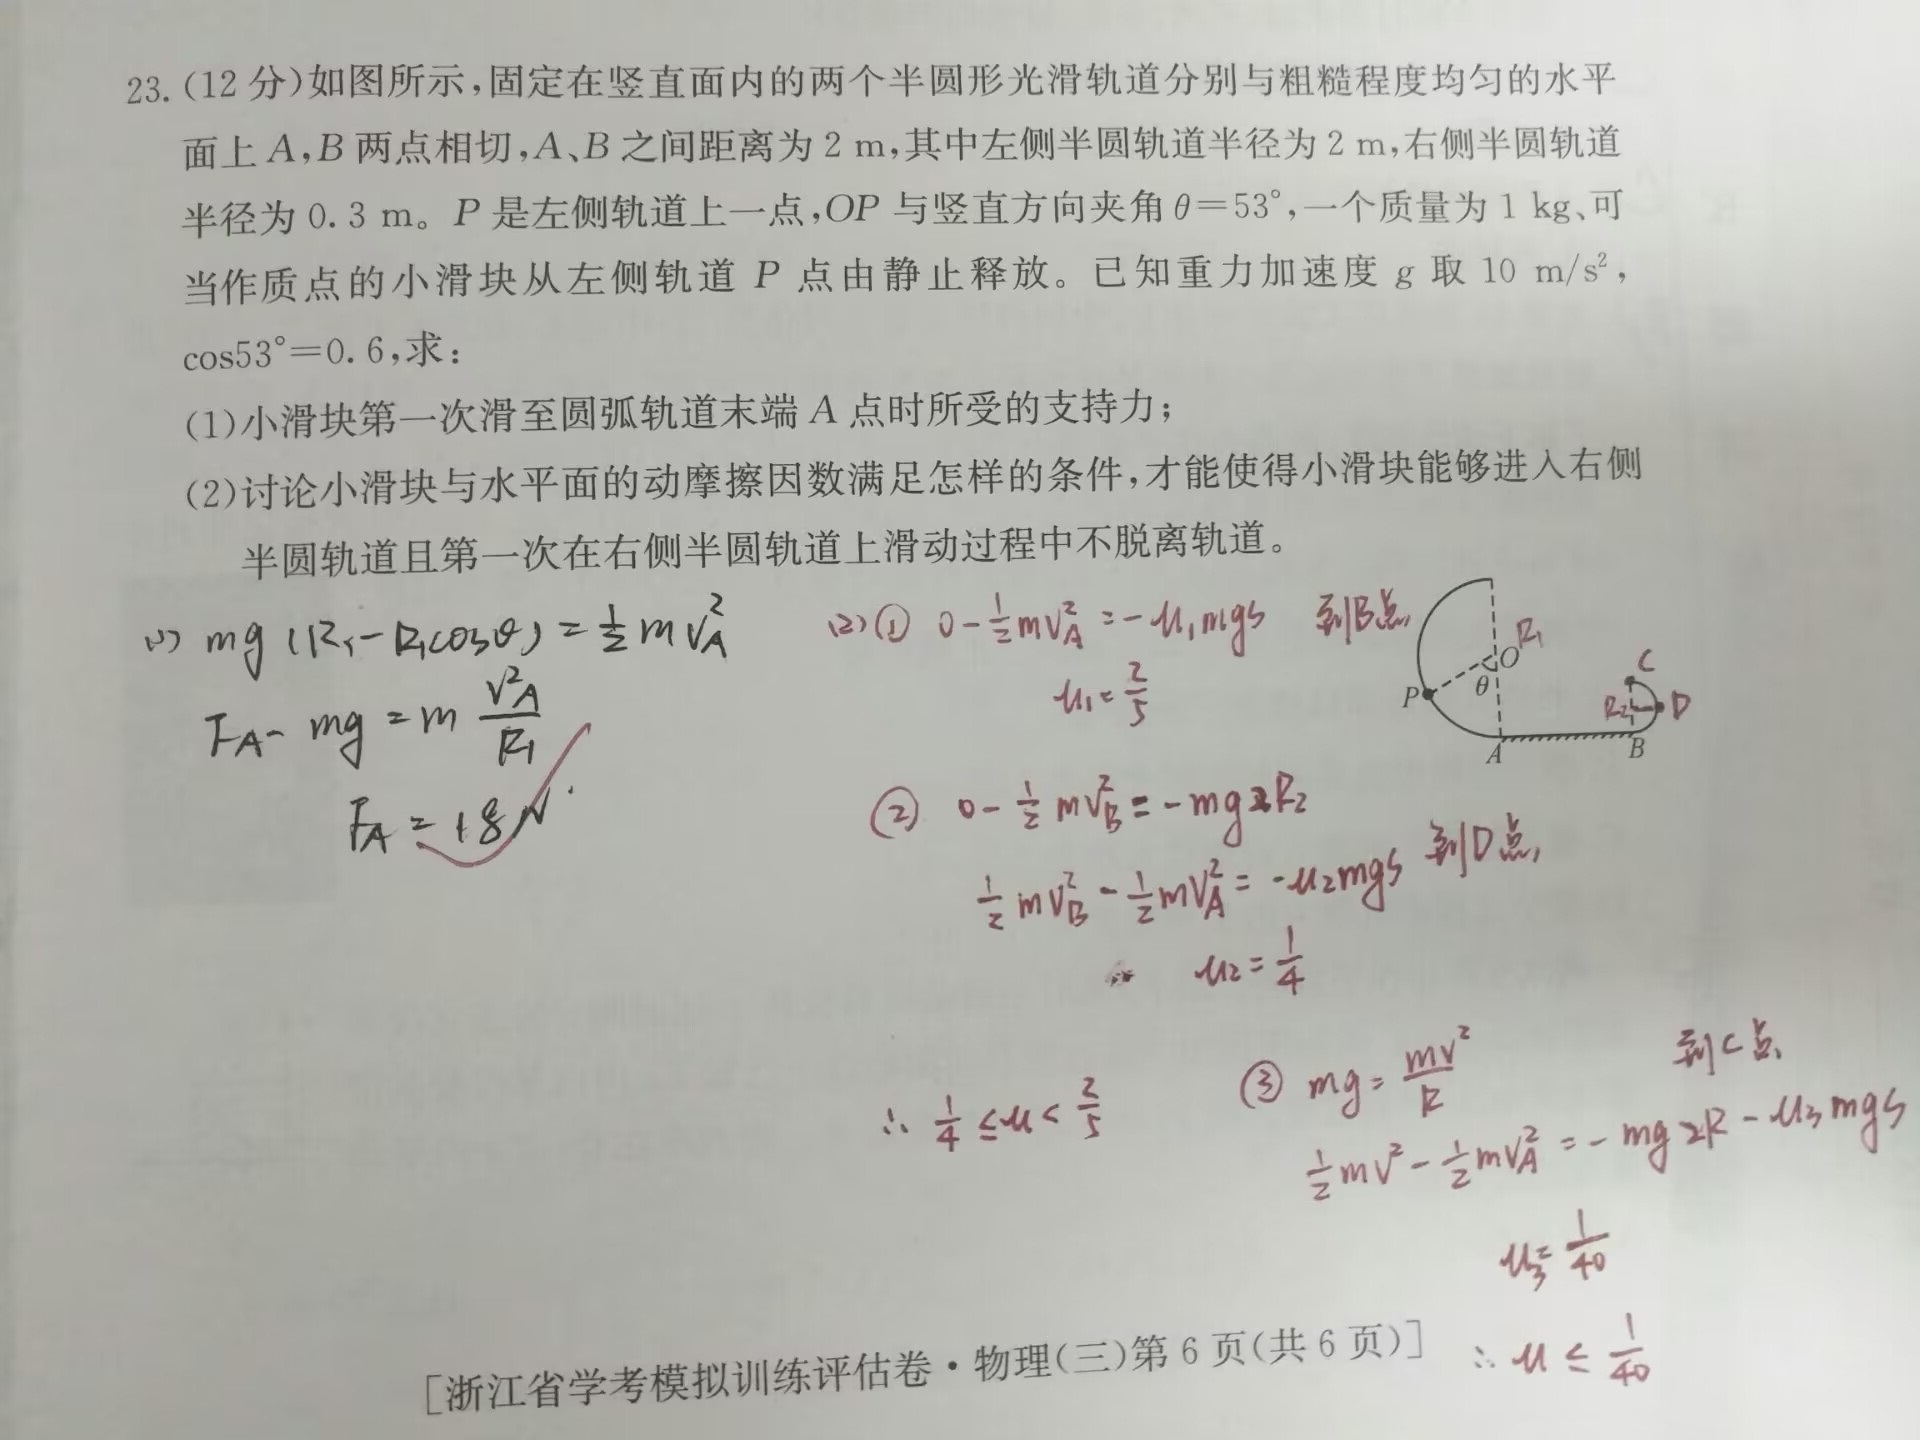 23. (12分)如图所示,固定在竖直面内的两个半圆形光滑轨道分别与粗糙程度均匀的水平
面上A,B两点相切,A、B之间距离为2 m,其中左侧半圆轨道半径为2 m,右侧半圆轨道
半径为0.3 m。P是左侧轨道上一点,OP与竖直方向夹角θ=53°,一个质量为1 kg、可
当作质点的小滑块从左侧轨道P点由静止释放。已知重力加速度g取10 m/s²,
cos53°=0.6,求:
(1)小滑块第一次滑至圆弧轨道末端A点时所受的支持力;
(2)讨论小滑块与水平面的动摩擦因数满足怎样的条件,才能使得小滑块能够进入右侧
半圆轨道且第一次在右侧半圆轨道上滑动过程中不脱离轨道。
(1) mg(R₁-R₁cosθ)=½mv_A²
F_A-mg=m v²_A/R₁
F_A=18N
(2)① 0-½mv_A²=-μ₁mgs 到B点,
μ₁=2/5
R₁
O
θ
P
A
B
C
R₂
D
② 0-½mv_B²=-mgR₂
½mv_B²-½mv_A²=-μ₂mgs 到D点,
μ₂=1/4
∴ 1/4≤μ<2/5
③ mg=mv²/R 到C点,
½mv²-½mv_A²=-mg2R-μ₃mgs
μ₃=1/40
∴ μ≤1/40
[浙江省学考模拟训练评估卷·物理(三)第6页(共6页)]